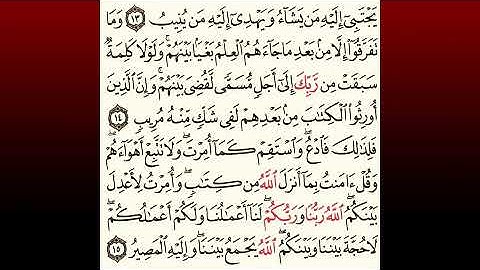 يَجْتَبِىٓ إِلَيْهِ مَن يَشَآءُ وَيَهْدِىٓ إِلَيْهِ مَن يُنِيبُ ١٣ وَمَا
تَفَرَّقُوٓا۟ إِلَّا مِنۢ بَعْدِ مَا جَآءَهُمُ ٱلْعِلْمُ بَغْيًۢا بَيْنَهُمْ ۚ وَلَوْلَا كَلِمَةٌ
سَبَقَتْ مِن رَّبِّكَ إِلَىٰٓ أَجَلٍ مُّسَمًّى لَّقُضِىَ بَيْنَهُمْ ۚ وَإِنَّ ٱلَّذِينَ
أُورِثُوا۟ ٱلْكِتَٰبَ مِنۢ بَعْدِهِمْ لَفِى شَكٍّ مِّنْهُ مُرِيبٍ ١٤
فَلِذَٰلِكَ فَٱدْعُ ۖ وَٱسْتَقِمْ كَمَآ أُمِرْتَ ۖ وَلَا تَتَّبِعْ أَهْوَآءَهُمْ ۖ
وَقُلْ ءَامَنتُ بِمَآ أَنزَلَ ٱللَّهُ مِن كِتَٰبٍ ۖ وَأُمِرْتُ لِأَعْدِلَ
بَيْنَكُمُ ۖ ٱللَّهُ رَبُّنَا وَرَبُّكُمْ ۖ لَنَآ أَعْمَٰلُنَا وَلَكُمْ أَعْمَٰلُكُمْ ۖ
لَا حُجَّةَ بَيْنَنَا وَبَيْنَكُمُ ۖ ٱللَّهُ يَجْمَعُ بَيْنَنَا ۖ وَإِلَيْهِ ٱلْمَصِيرُ ١٥